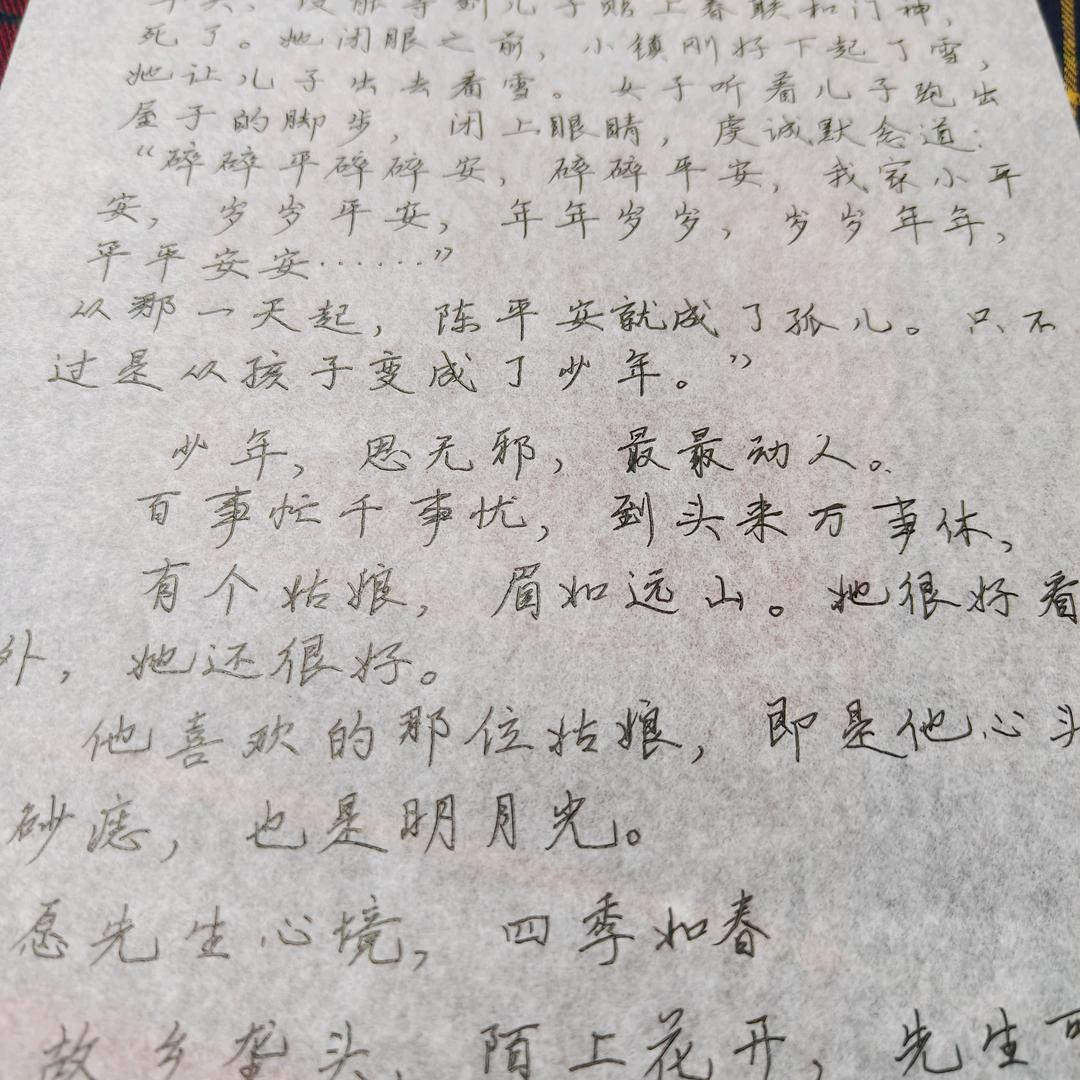 年头、没能等到儿子贴上春联和门神，
死了。她闭眼之前，小镇刚好下起了雪，
她让儿子出去看雪。女子听着儿子跑出
屋子的脚步，闭上眼睛，虔诚默念道：
“碎碎平碎碎安，碎碎平安，我家小平
安，岁岁平安，年年岁岁，岁岁年年，
平平安安……”
从那一天起，陈平安就成了孤儿。只不
过是从孩子变成了少年。”
少年，思无邪，最最动人。
百事忙千事忧，到头来万事休，
有个姑娘，眉如远山。她很好看
外，她还很好。
他喜欢的那位姑娘，即是他心头
砂痣，也是明月光。
愿先生心境，四季如春
故乡垄头，陌上花开，先生可